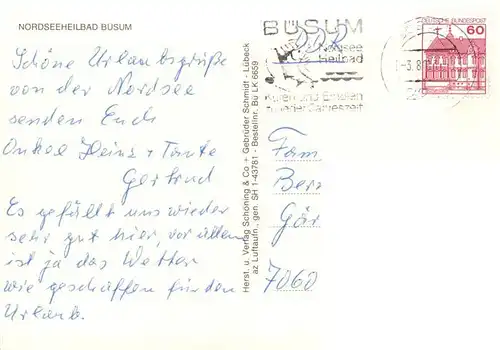 NORDSEEHEILBAD BÜSUM
Schöne Urlaubsgrüße
von der Nordsee
senden Euch
Onkel Heinz + Tante
Gertrud
Es gefällt uns wieder
sehr gut hier, vor allem
ist ja das Wetter
wie geschaffen für den
Urlaub.
Herst. u. Verlag Schöning & Co + Gebrüder Schmidt - Lübeck
az Luftaufn., gen. SH 1-43781 - Bestellnr. Bü LK 6659
BÜSUM
Nordsee
Heilbad
Kuren und Erholen
zu jeder Jahreszeit
DDR
DEUTSCHE BUNDESPOST
60
Fam
Ber
Gör
7060